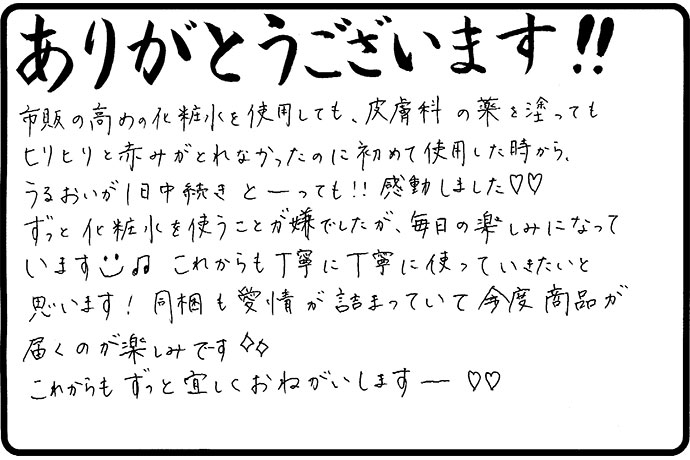 ありがとうございます!!
市販の高めの化粧水を使用しても、皮膚科の薬を塗っても
ヒリヒリと赤みがとれなかったのに初めて使用した時から、
うるおいが1日中続きと一っても!!感動しました♡♡
ずっと化粧水を使うことが嫌でしたが、毎日の楽しみになって
います☺♫ これからも丁寧に丁寧に使っていきたいと
思います! 同梱も愛情が詰まっていて今度商品が
届くのが楽しみです✧✧
これからもずっと宜しくおねがいしますー♡♡